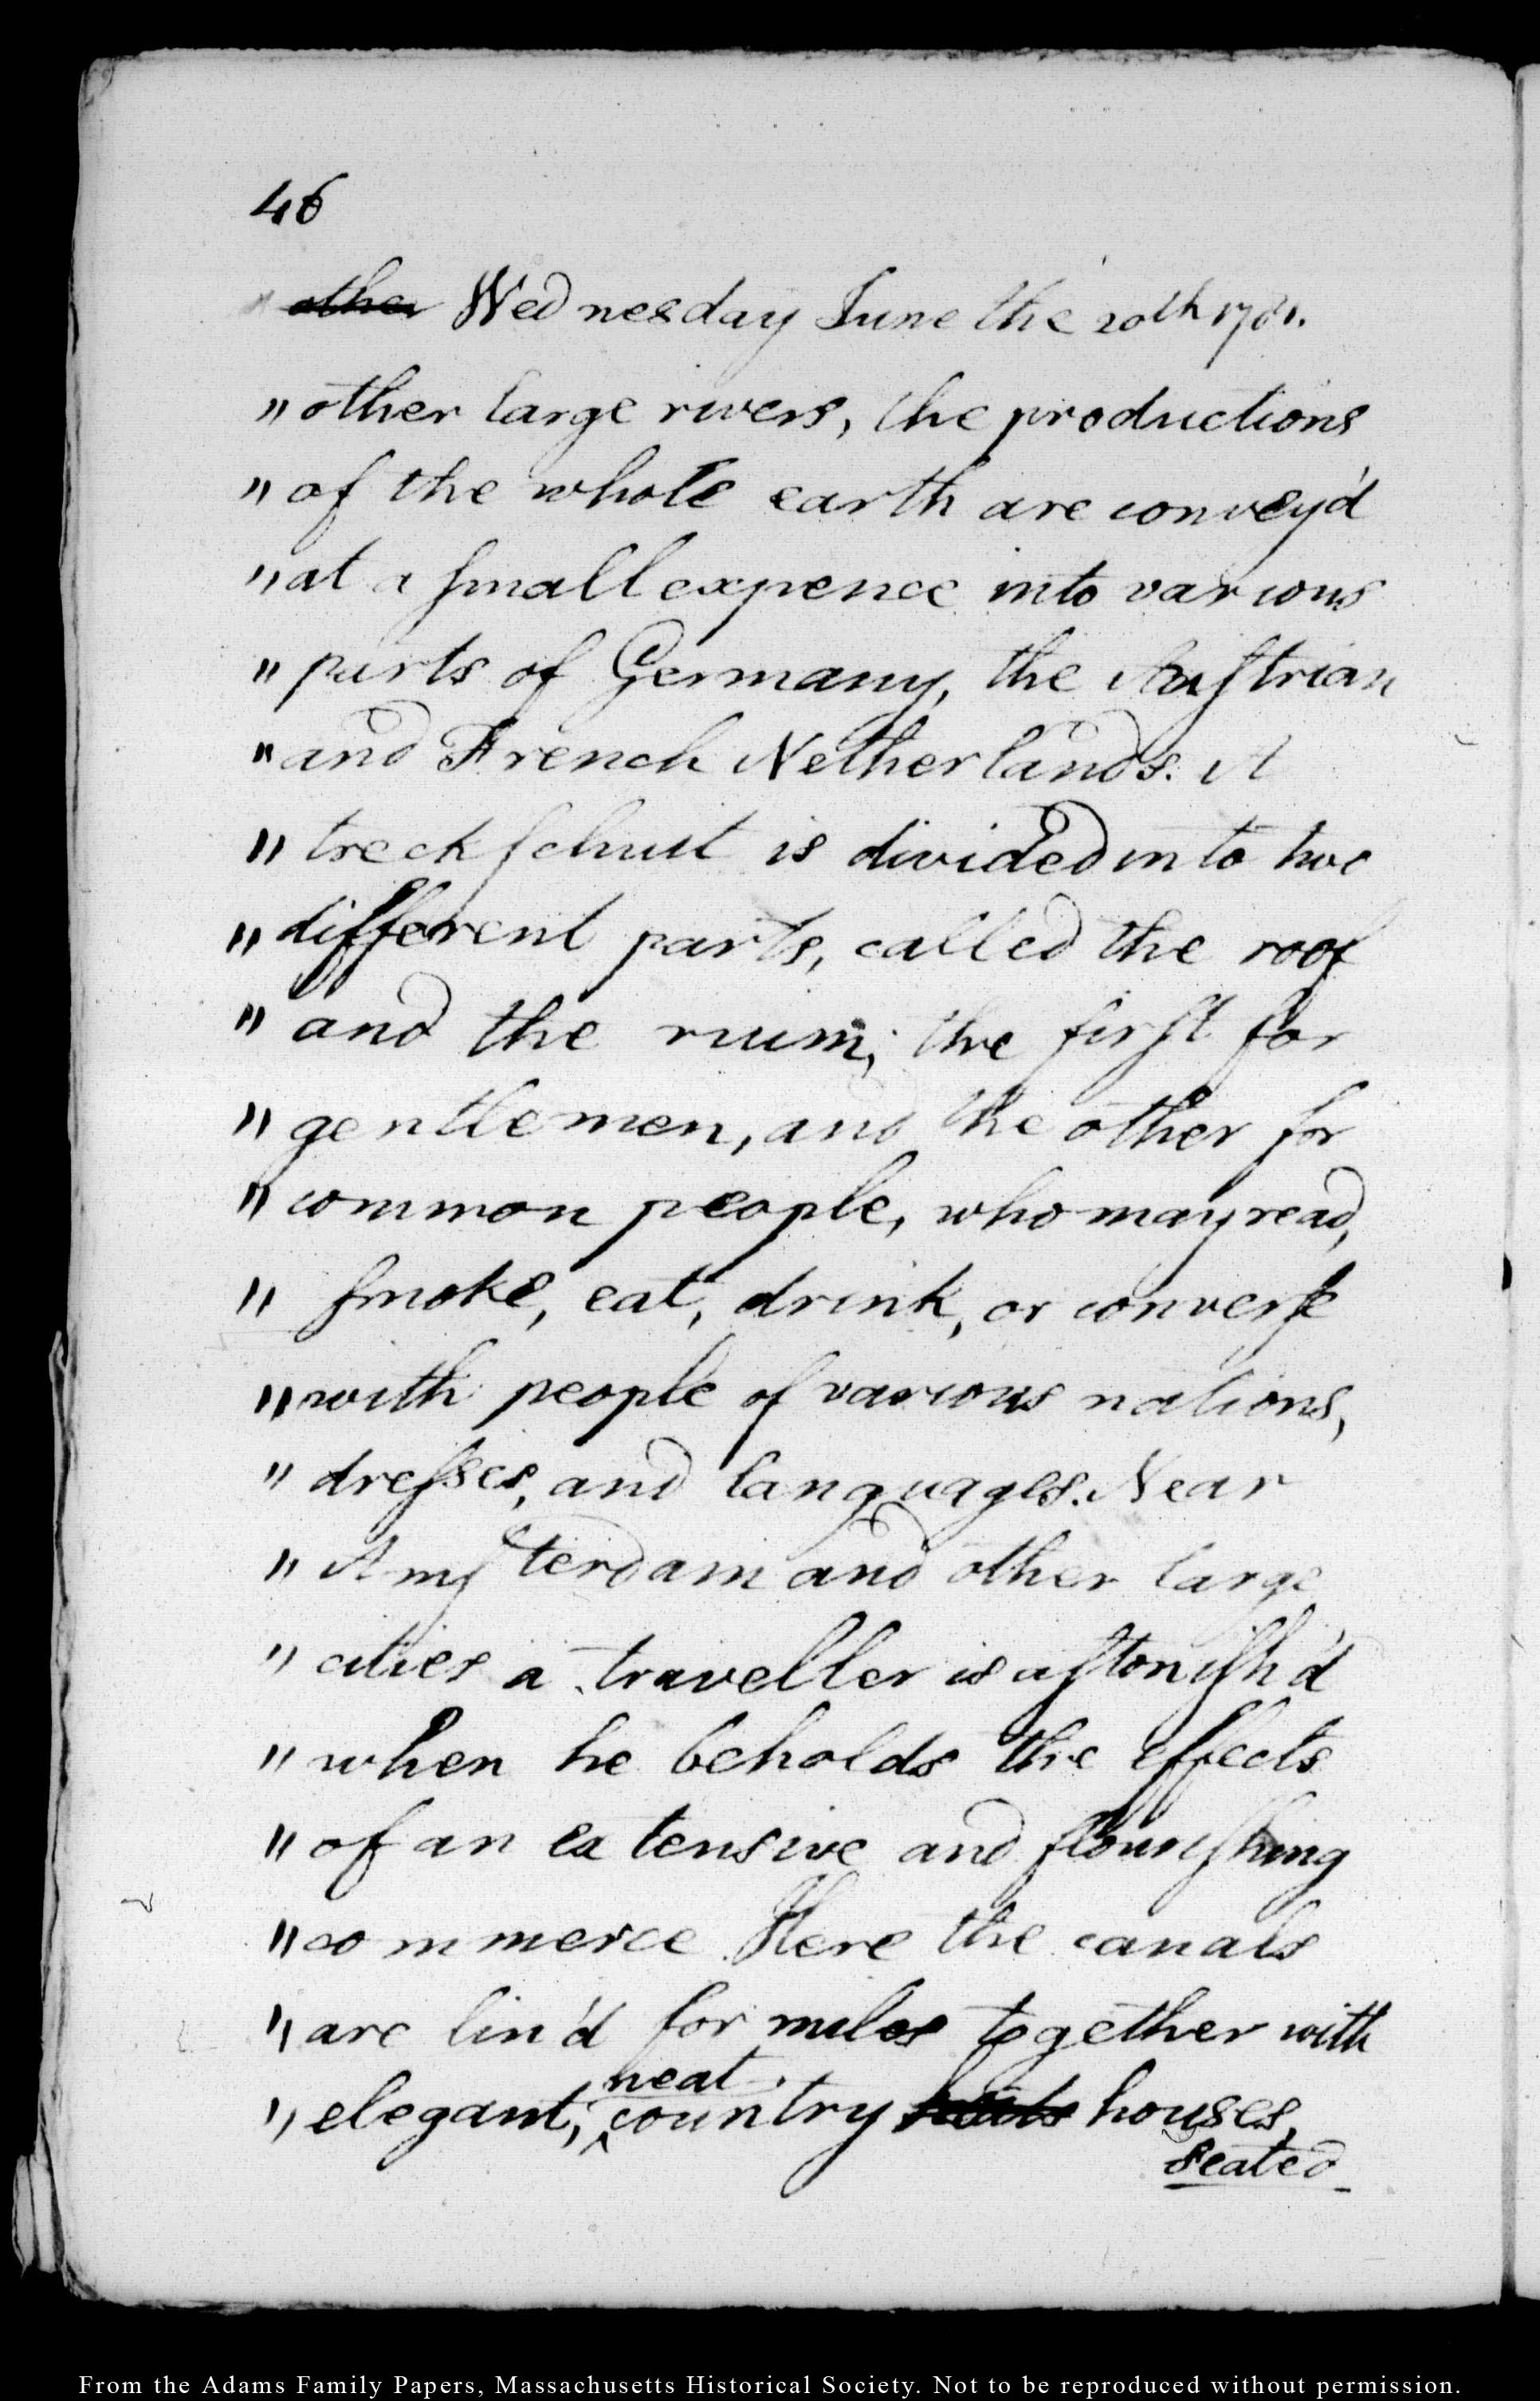 46
other Wednesday June the 20th 1781.
" other large rivers, the productions
" of the whole earth are convey'd
" at a small expence into various
" parts of Germany, the Austrian
" and French Netherlands. A
" treckschuit is divided into two
" different parts, called the roof
" and the ruim; the first for
" gentlemen, and the other for
" common people, who may read,
" smoke, eat, drink, or converse
" with people of various nations,
" dresses, and languages. Near
" Amsterdam and other large
" cities a traveller is astonish'd
" when he beholds the effects
" of an extensive and flourishing
" commerce Here the canals
" are lin'd for miles together with
neat
" elegant, ^ country seats houses,
seated
From the Adams Family Papers, Massachusetts Historical Society. Not to be reproduced without permission.